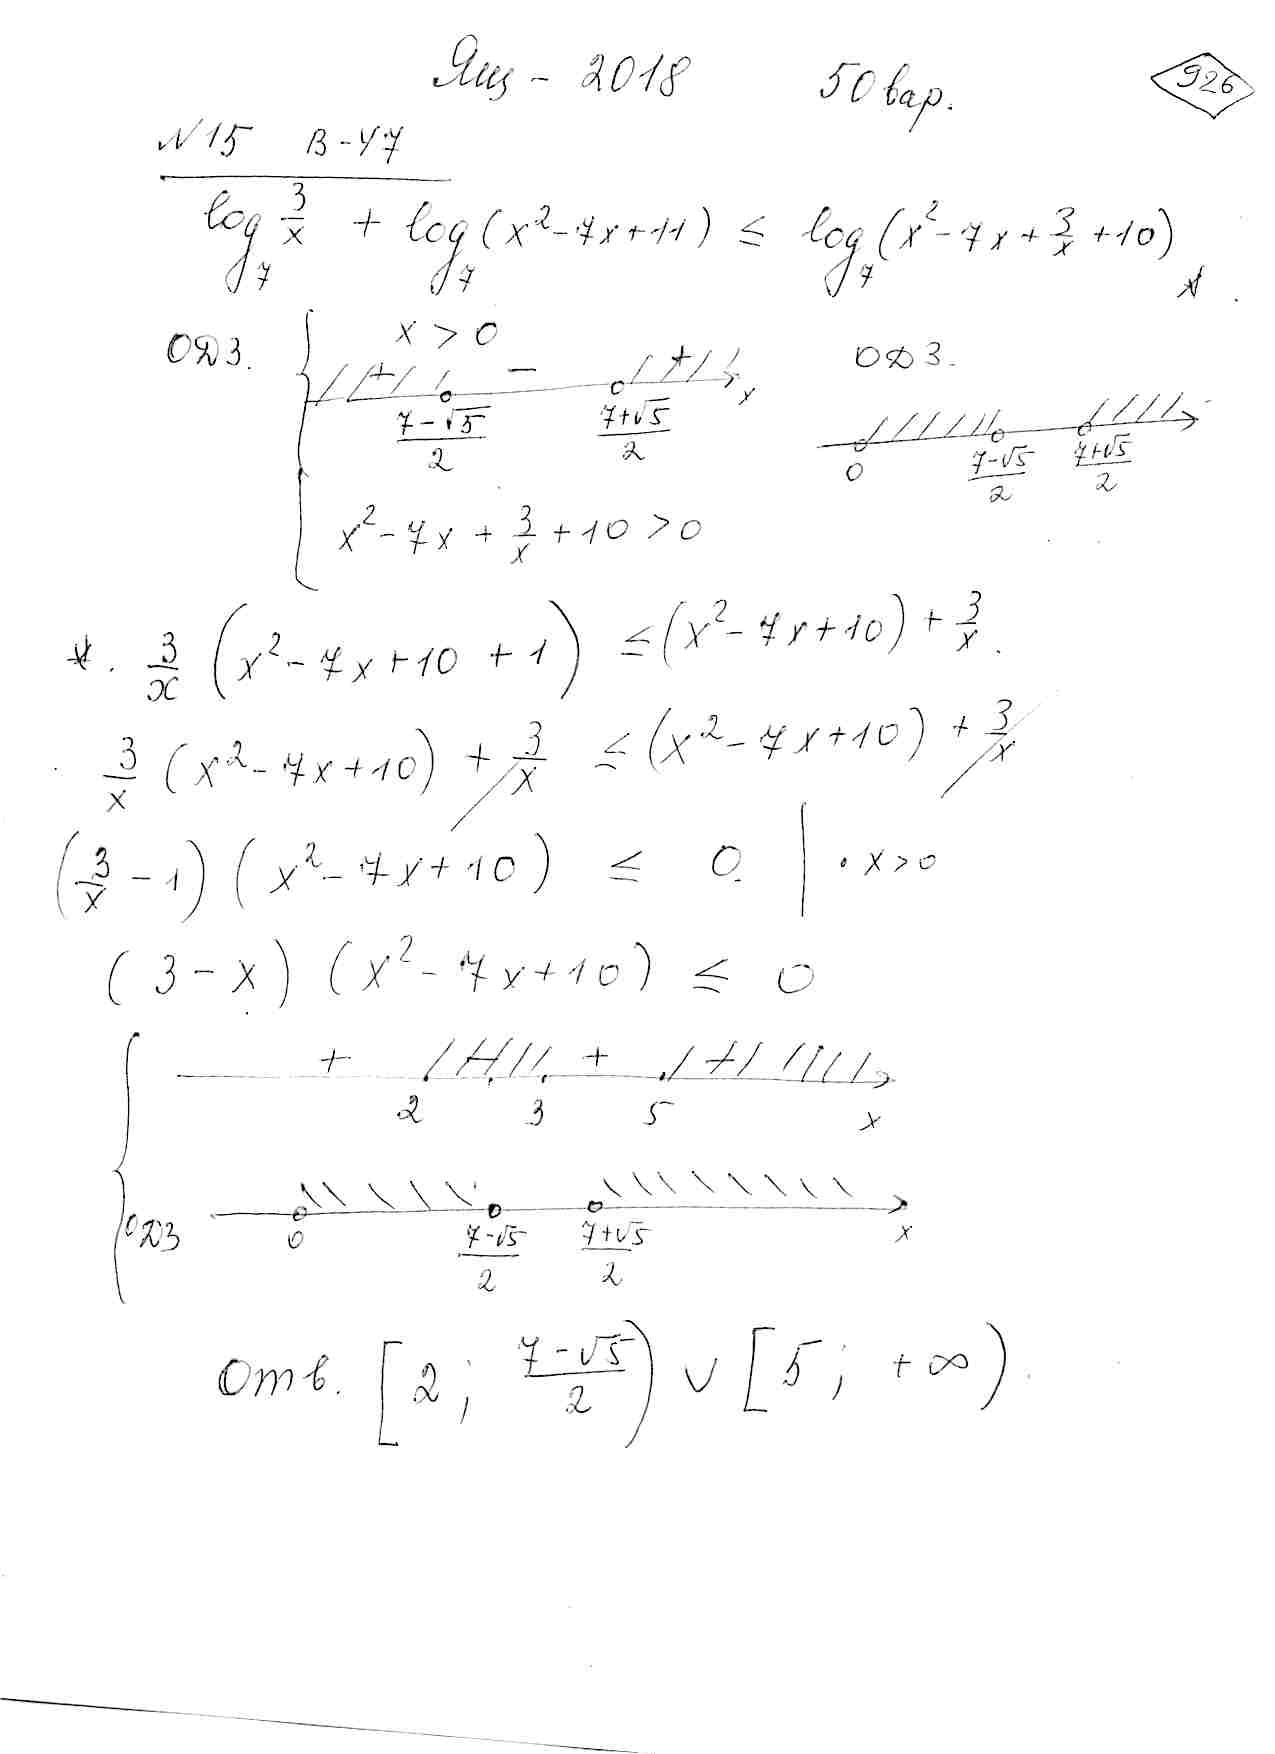 Ящ - 2018 50 вар. 926
N 15 В-47
log₇ 3/x + log₇(x²-7x+11) ≤ log₇(x²-7x+3/x+10) *.
ОДЗ. { x > 0 ОДЗ.
+ - + x
(7-√5)/2 (7+√5)/2 0 (7-√5)/2 (7+√5)/2
x²-7x+3/x+10 > 0
*. 3/x (x²-7x+10+1) ≤ (x²-7x+10)+3/x.
3/x (x²-7x+10) + 3/x ≤ (x²-7x+10) + 3/x
(3/x - 1)(x²-7x+10) ≤ 0. | · x>0
(3-x)(x²-7x+10) ≤ 0
+ - + -
2 3 5 x
ОДЗ 0 (7-√5)/2 (7+√5)/2 x
Отв. [2; (7-√5)/2) ∪ [5; +∞).